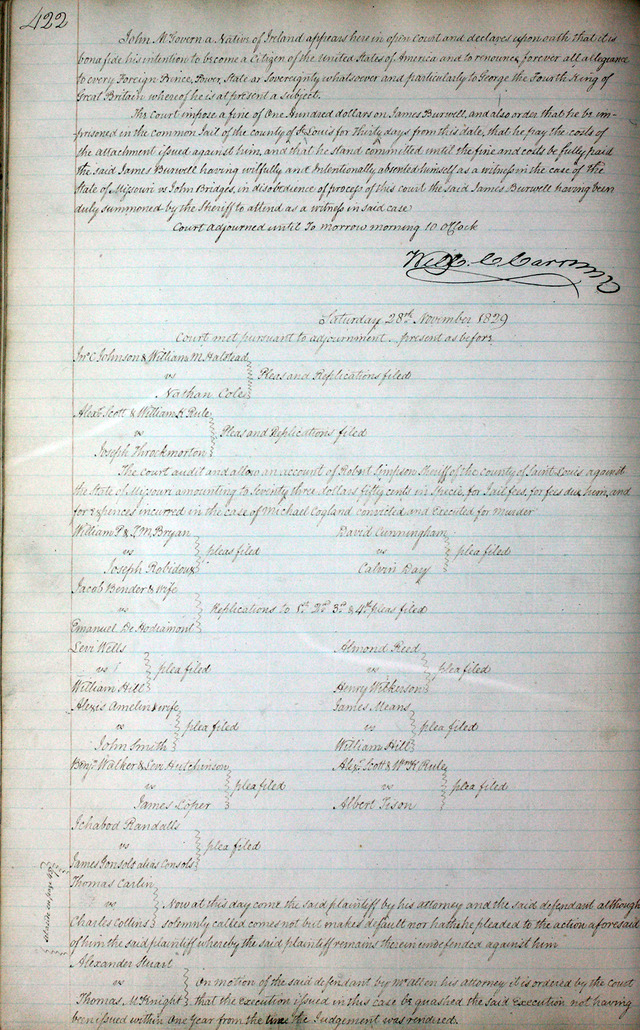 422
John McGovern a Native of Ireland appears here in open Court and declares upon oath that it is
bona fide his intention to become a Citizen of the United States of America and to renounce forever all allegiance
to every Foreign Prince, Power, State or Sovereignty whatsoever and particularly to George the Fourth King of
Great Britain whereof he is at present a subject.
The Court impose a fine of One Hundred dollars on James Burwell, and also order that he be im-
prisoned in the common Jail of the county of St Louis for Thirty days from this date, that he pay the costs
of the attachment issued against him, and that he stand committed until the fine and costs be fully paid
the said James Burwell having wilfully and Intentionally absented himself as a witness in the case of the
State of Missouri vs John Bridges, in disobedience of process of this court the said James Burwell having been
duly summoned by the Sheriff to attend as a witness in said case
Court adjourned until To morrow morning 10 oClock
Will. C Carr
Saturday 28th November 1829
Court met pursuant to adjournment. present as before
Jno C Johnson & William M. Halstead
vs Pleas and Replications filed
Nathan Coles
Alexr Scott & William K Rule
vs Pleas and Replications filed
Joseph Throckmorton
The Court audit and allow an account of Robert Simpson Sheriff of the county of Saint Louis, against
the State of Missouri amounting to Seventy three dollars fifty cents in Specie, for Jail fees, for fees due him, and
for expences incurred in the case of Michael Cogland convicted and Executed for murder
William P & J M Bryan
vs pleas filed
Joseph Robidoux
David Cunningham
vs plea filed
Calvin Day
Jacob Bender & wife
vs Replications to 1st 2d 3d & 4th pleas filed
Emanuel De Hodiamont
Levi Wells
vs plea filed
William Hill
Almond Reed
vs plea filed
Henry Wilkerson
Alexis Amelin & wife
vs plea filed
John Smith
James Means
vs plea filed
William Hill
Benjn Walker & Levi Hutchinson
vs plea filed
James Loper
Alexr Scott & Wm K Rule
vs plea filed
Albert Tison
Ichabod Randalls
vs plea filed
James Gonsolo alias Consols
Thomas Carlin
vs Now at this day come the said plaintiff by his attorney and the said defendant although
Charles Collins solemnly called comes not but makes default nor hath he pleaded to the action aforesaid
of him the said plaintiff whereby the said plaintiff remains therein undefended against him
Alexander Stuart
vs On motion of the said defendant by Mr Allen his attorney it is ordered by the court
Thomas McKnight that the execution issued in this case be quashed the said Execution not having
been issued within One Year from the time the Judgement was rendered.